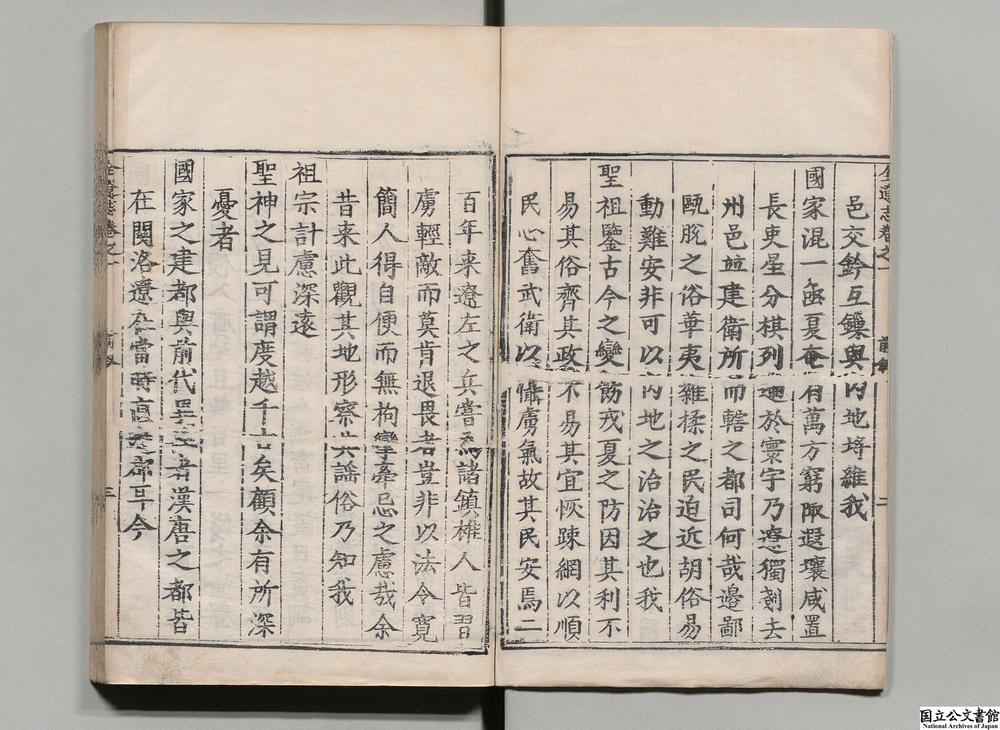 邑交錯互鑣與內地埒維我
國家混一函夏奄有萬方窮陬遐壤咸置
長吏星分棋列遍於寰宇乃遼獨剗去
州邑並建衛所而轄之都司何哉邊鄙
甌脫之俗華夷雜揉之民迫近胡俗易
動難安非可以內地之治治之也我
聖祖鑒古今之變飭戎夏之防因其利不
易其俗齊其政不易其宜恢疎網以順
民心奮武衛以懾虜氣故其民安焉二
百年來遼左之兵嘗為諸鎮雄人皆習
虜輕敵而莫肯退畏者豈非以法令寬
簡人得自便而無拘攣牽忌之慮哉余
昔來此觀其地形察其謡俗乃知我
祖宗計慮深遠
聖神之見可謂度越千古矣顧余有所深
憂者
國家之建都與前代異者漢唐之都皆
在関洛遼在當時邊郡耳今
全遼志卷之一
二
全遼志卷之一
三
国立公文書館
National Archives of Japan